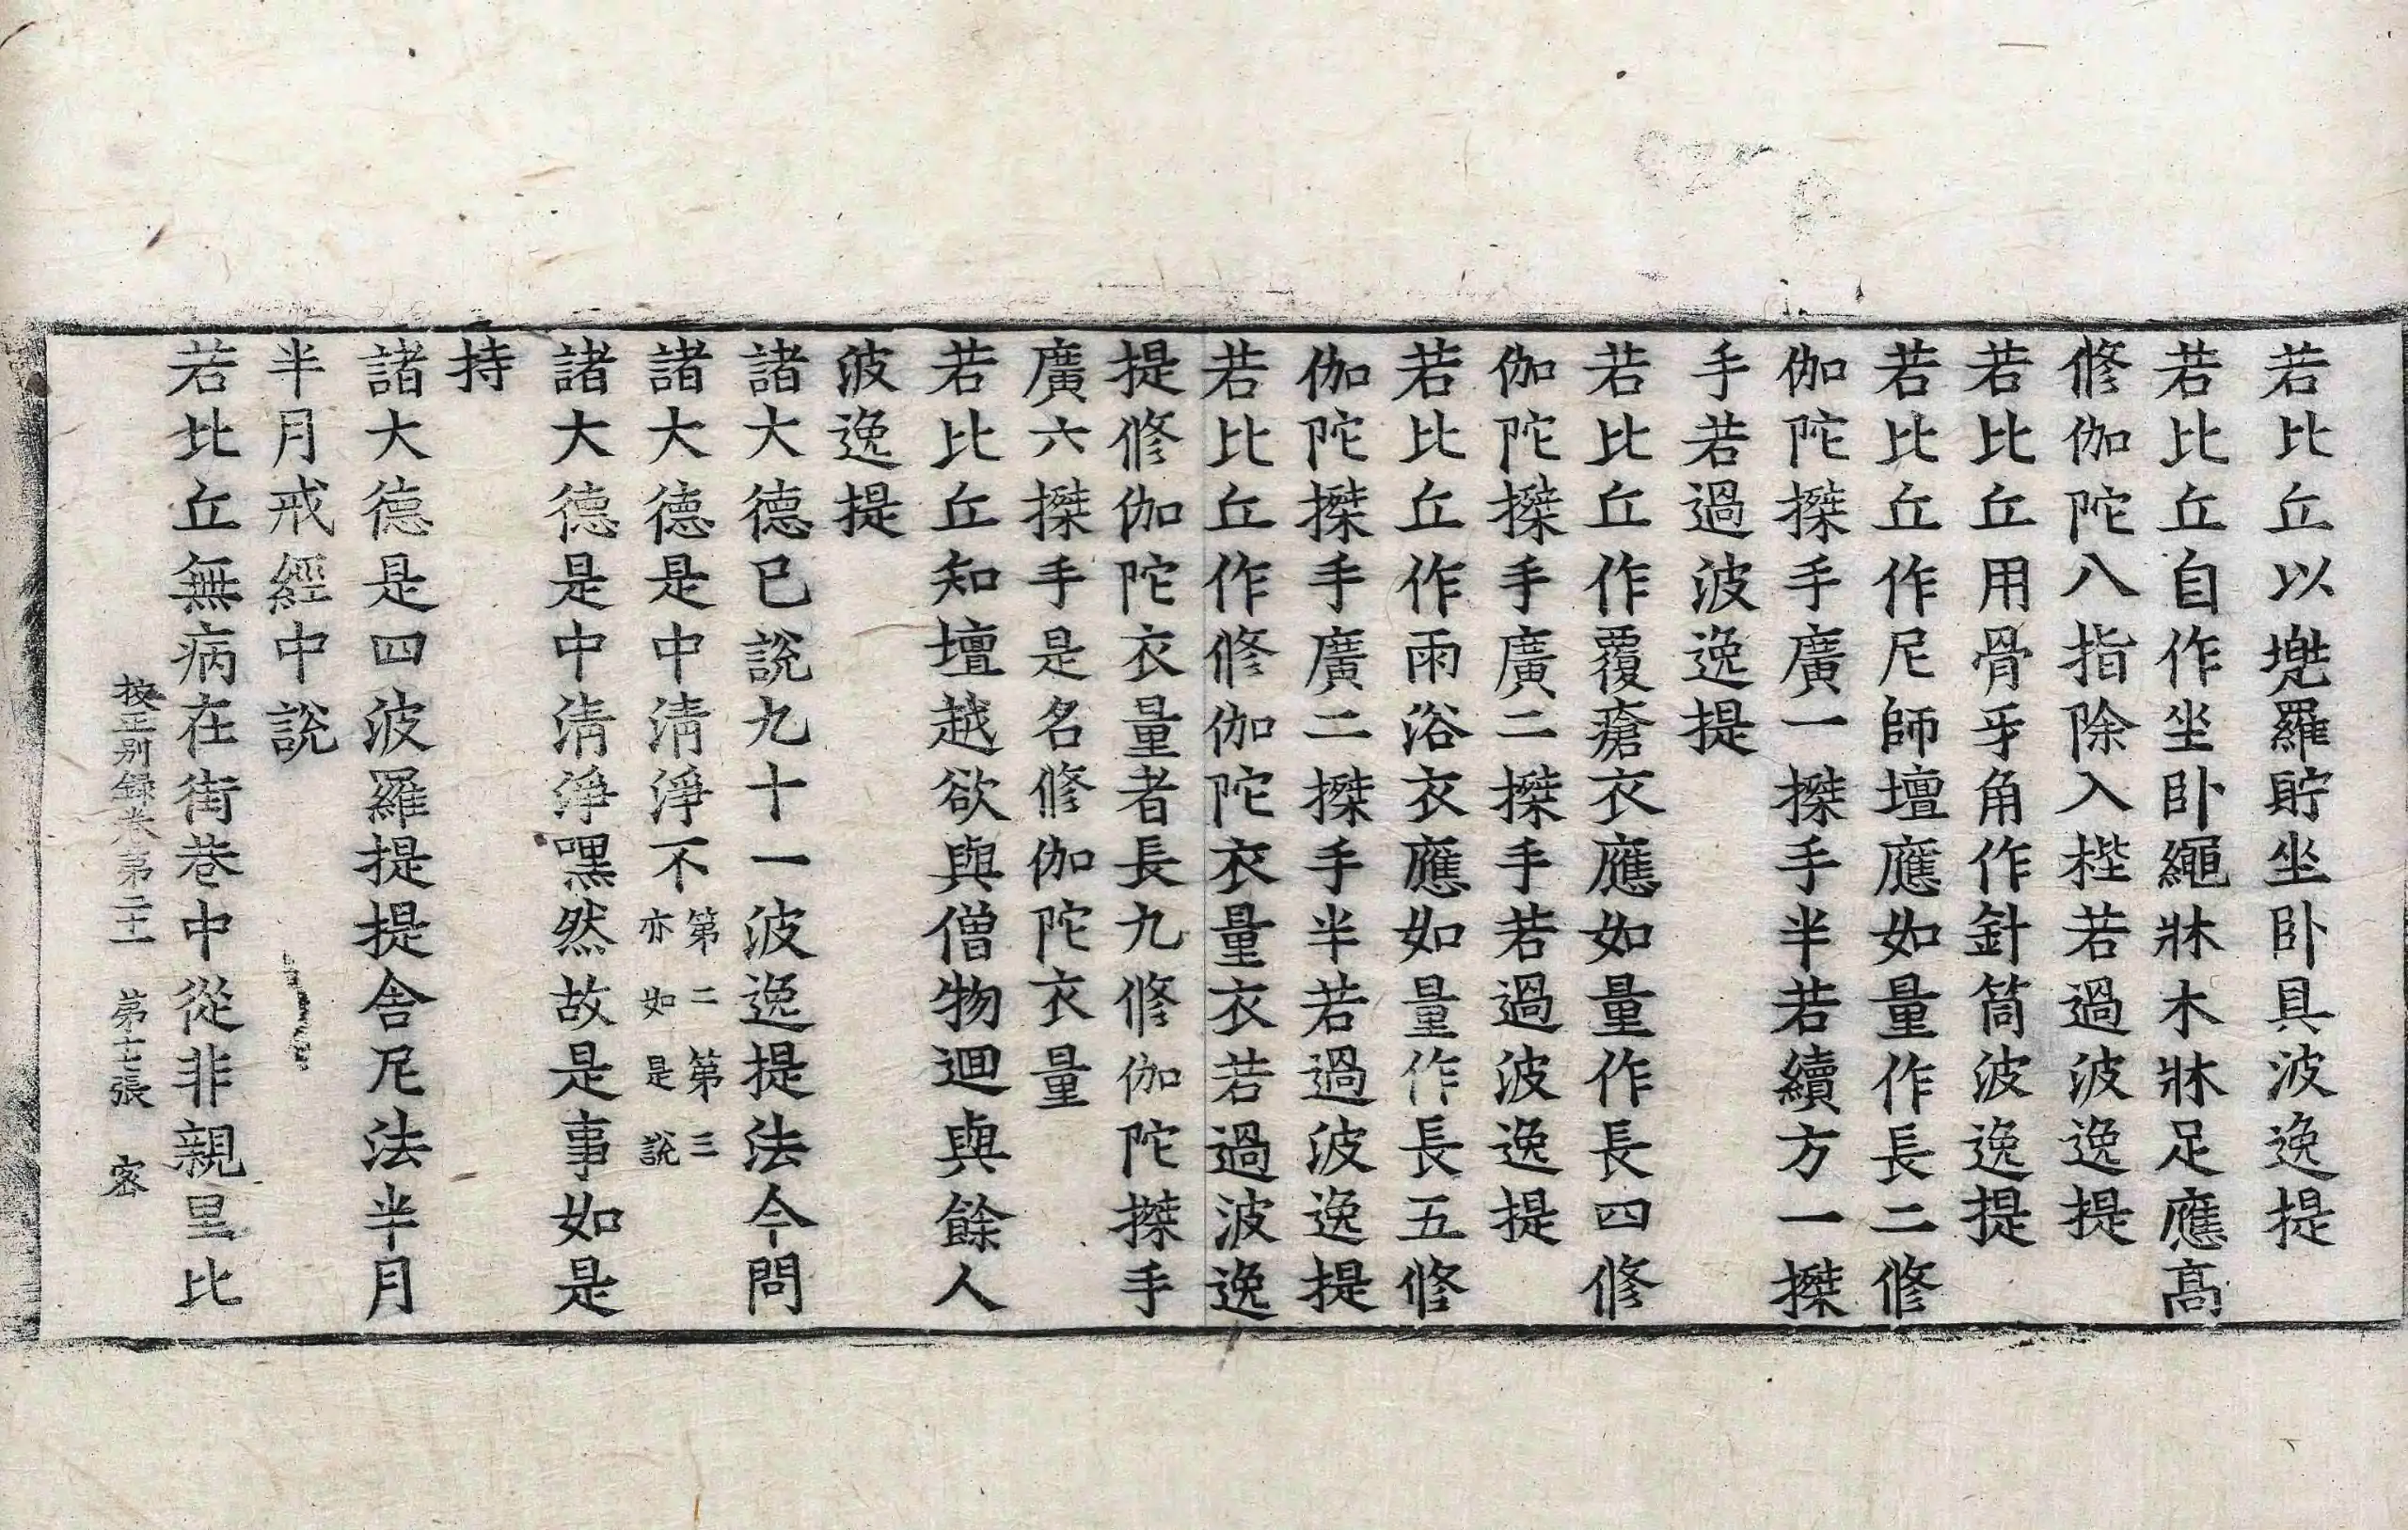 若比丘以兠羅貯坐卧具波逸提
若比丘自作坐卧繩牀木牀足應髙
修伽陀八指除入梐若過波逸提
若比丘用骨牙角作針筒波逸提
若比丘作尼師壇應如量作長二修
伽陀搩手廣一搩手半若續方一搩
手若過波逸提
若比丘作覆瘡衣應如量作長四修
伽陀搩手廣二搩手若過波逸提
若比丘作雨浴衣應如量作長五修
伽陀搩手廣二搩手半若過波逸提
若比丘作修伽陀衣量衣若過波逸
提修伽陀衣量者長九修伽陀搩手
廣六搩手是名修伽陀衣量
若比丘知壇越欲與僧物迴與餘人
波逸提
諸大德已說九十一波逸提法今問
諸大德是中清淨不第二第三亦如是說
諸大德是中清淨嘿然故是事如是
持
諸大德是四波羅提提舍尼法半月
半月戒經中說
若比丘無病在街巷中從非親里比
挍正別録卷第二十一 第十七張 客